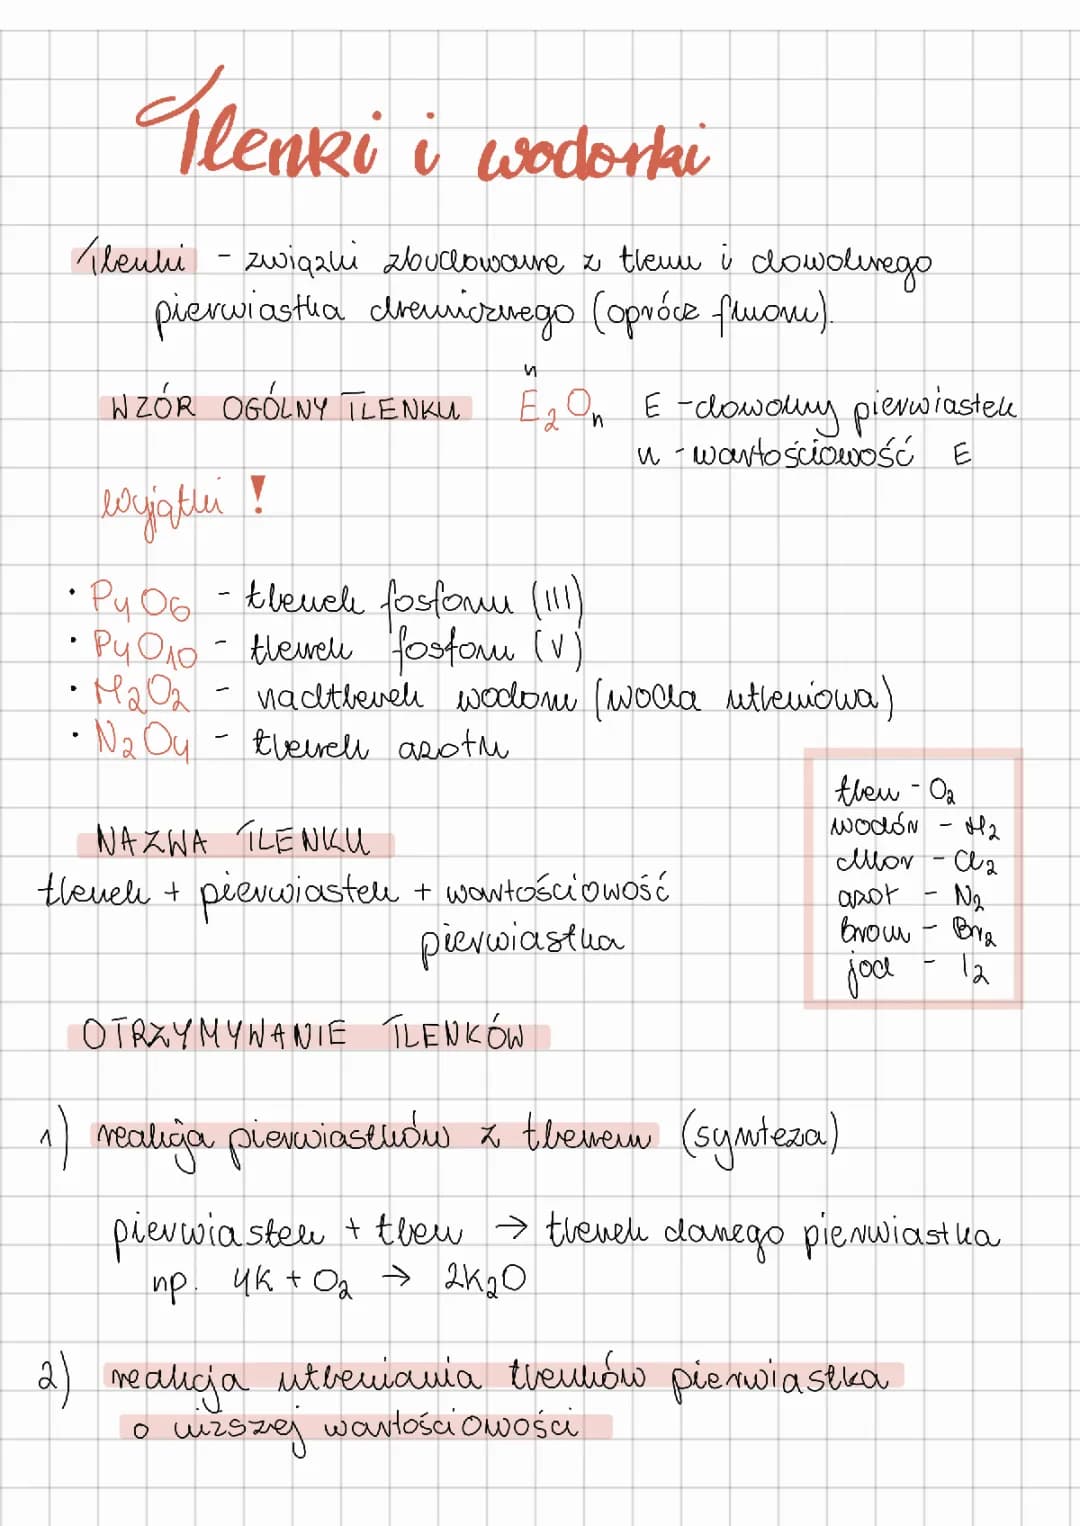 Tlenki i wodorki
Tlenki - związki zbudowane z tlenu i dowolnego
pierwiastka chemicznego (oprócz fluoru).
n
WZÓR OGÓLNY TLENKU E₂Oₙ E - dowolny pierwiastek
n - wartościowość E
wyjątki !
• P₄O₆ - tlenek fosforu (III)
• P₄O₁₀ - tlenek fosforu (V)
• H₂O₂ - nadtlenek wodoru (woda utleniowa)
• N₂O₄ - tlenek azotu
tlen - O₂
wodór - H₂
chlor - Cl₂
azot - N₂
brom - Br₂
jod - I₂
NAZWA TLENKU
tlenek + pierwiastek + wartościowość
pierwiastka
OTRZYMYWANIE TLENKÓW
1) reakcja pierwiastków z tlenem (synteza)
pierwiastek + tlen → tlenek danego pierwiastka
np. 4K + O₂ → 2K₂O
2) reakcja utleniania tlenków pierwiastka
o niższej wartościowości